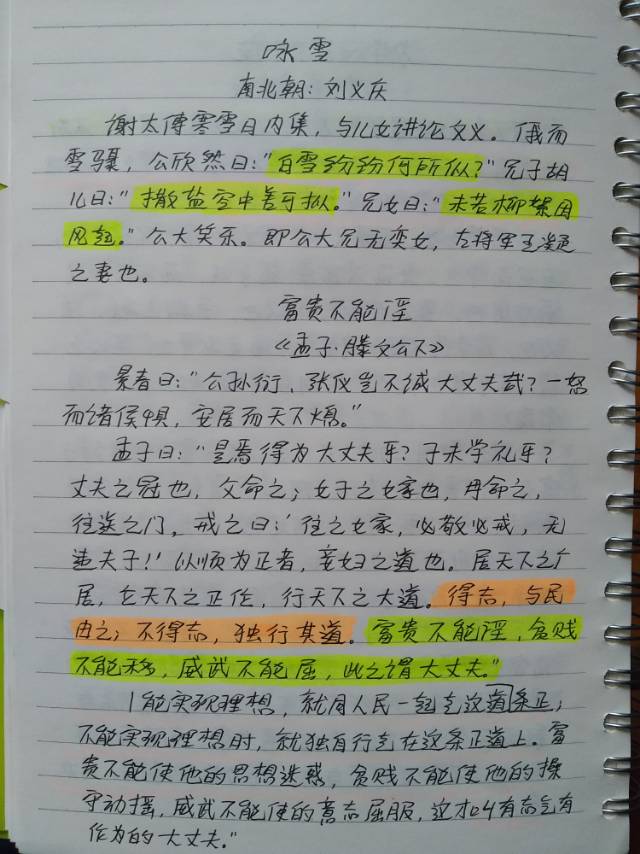 咏雪
南北朝：刘义庆
谢太傅寒雪日内集，与儿女讲论文义。俄而
雪骤，公欣然曰："白雪纷纷何所似？"兄子胡
儿曰："撒盐空中差可拟。"兄女曰："未若柳絮因
风起。"公大笑乐。即公大兄无奕女，左将军王凝
之妻也。
富贵不能淫
《孟子·滕文公下》
景春曰："公孙衍、张仪岂不诚大丈夫哉？一怒
而诸侯惧，安居而天下熄。"
孟子曰："是焉得为大丈夫乎？子未学礼乎？
丈夫之冠也，父命之；女子之女家也，母命之，
往送之门，戒之曰：'往之女家，必敬必戒，无
违夫子！'以顺为正者，妾妇之道也。居天下之广
居，立天下之正位，行天下之大道。得志，与民
由之；不得志，独行其道。富贵不能淫，贫贱
不能移，威武不能屈，此之谓大丈夫。"
能实现理想，就同人民一起走这道条正；
不能实现理想时，就独自行走在这条正道上。富
贵不能使他的思想迷惑，贫贱不能使他的操
守动摇，威武不能使的意志屈服，这才叫有志气有
作为的大丈夫。"